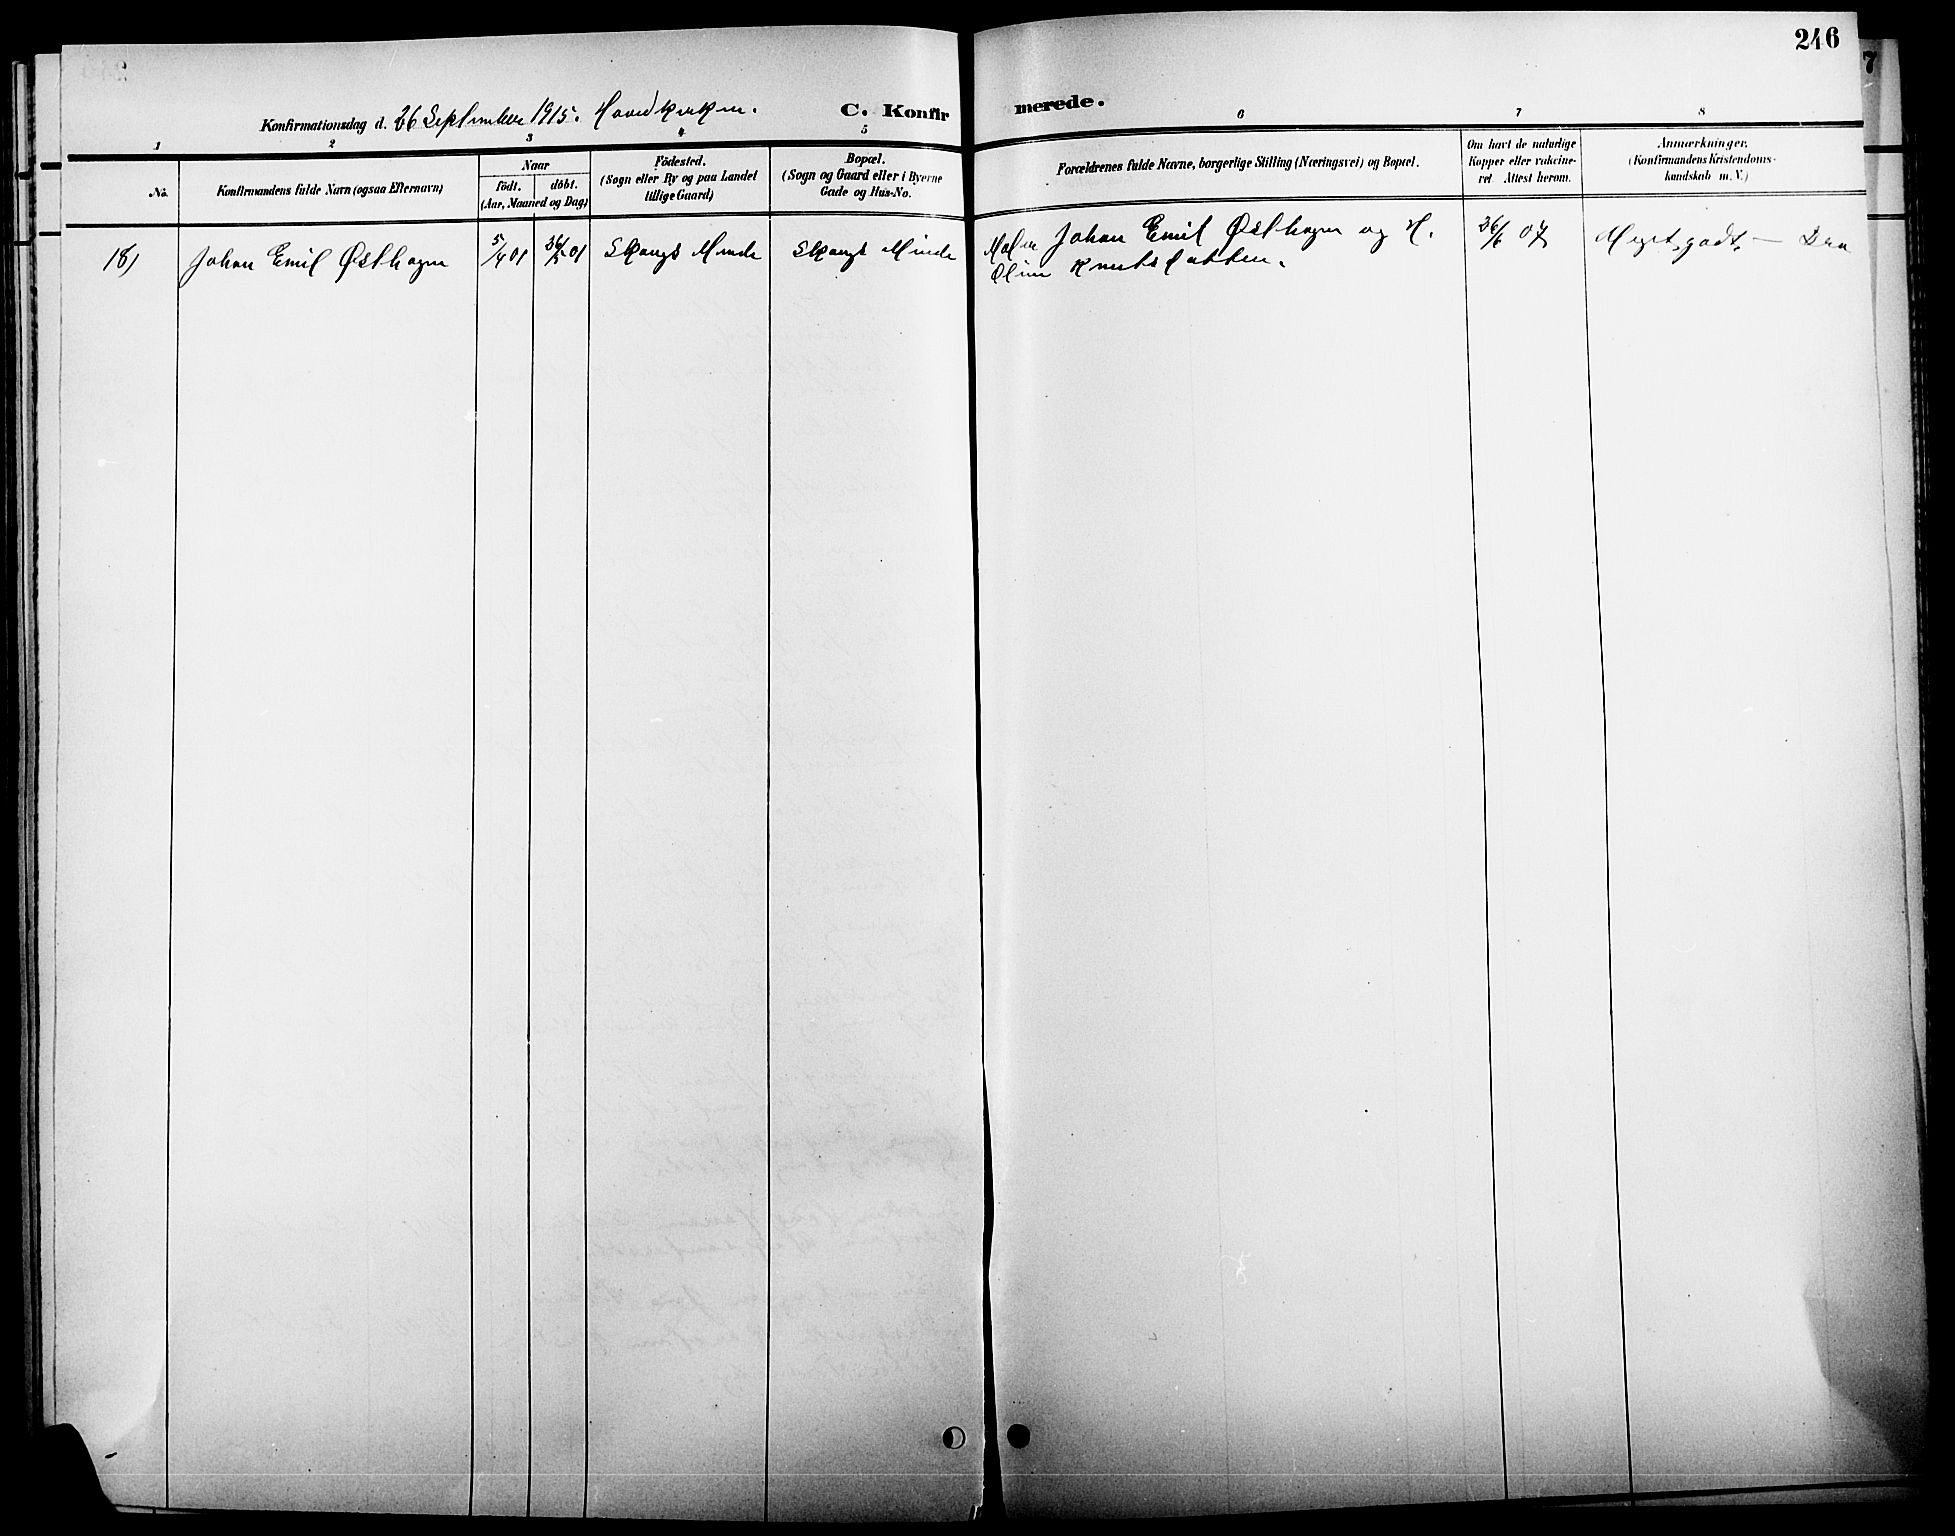 246
7
Konfirmationsdag d. 26 September 1915. Hovedkirken. C. Konfirmerede.
1 2 3 4 5 6 7 8
No.
Konfirmandens fulde Navn (ogsaa Efternavn)
Naar
födt. döbt.
(Aar, Maaned og Dag)
Födested.
(Sogn eller By og paa Landet
tillige Gaard)
Bopæl.
(Sogn og Gaard eller i Byerne
Gade og Hus-No.
Forældrenes fulde Navne, borgerlige Stilling (Næringsvei) og Bopæl.
Om havt de naturlige
Kopper eller vakcine-
ret. Attest herom.
Anmærkninger,
(Konfirmandens Kristendoms-
kundskab m. V.)
18) Johan Emil Østhagen 5/4 01 26/5 01 Skougs Minde Skougs Minde Maler Johan Emil Østhagen og H. 26/6 07 Meget godt, —
Oline Knutsdatter.